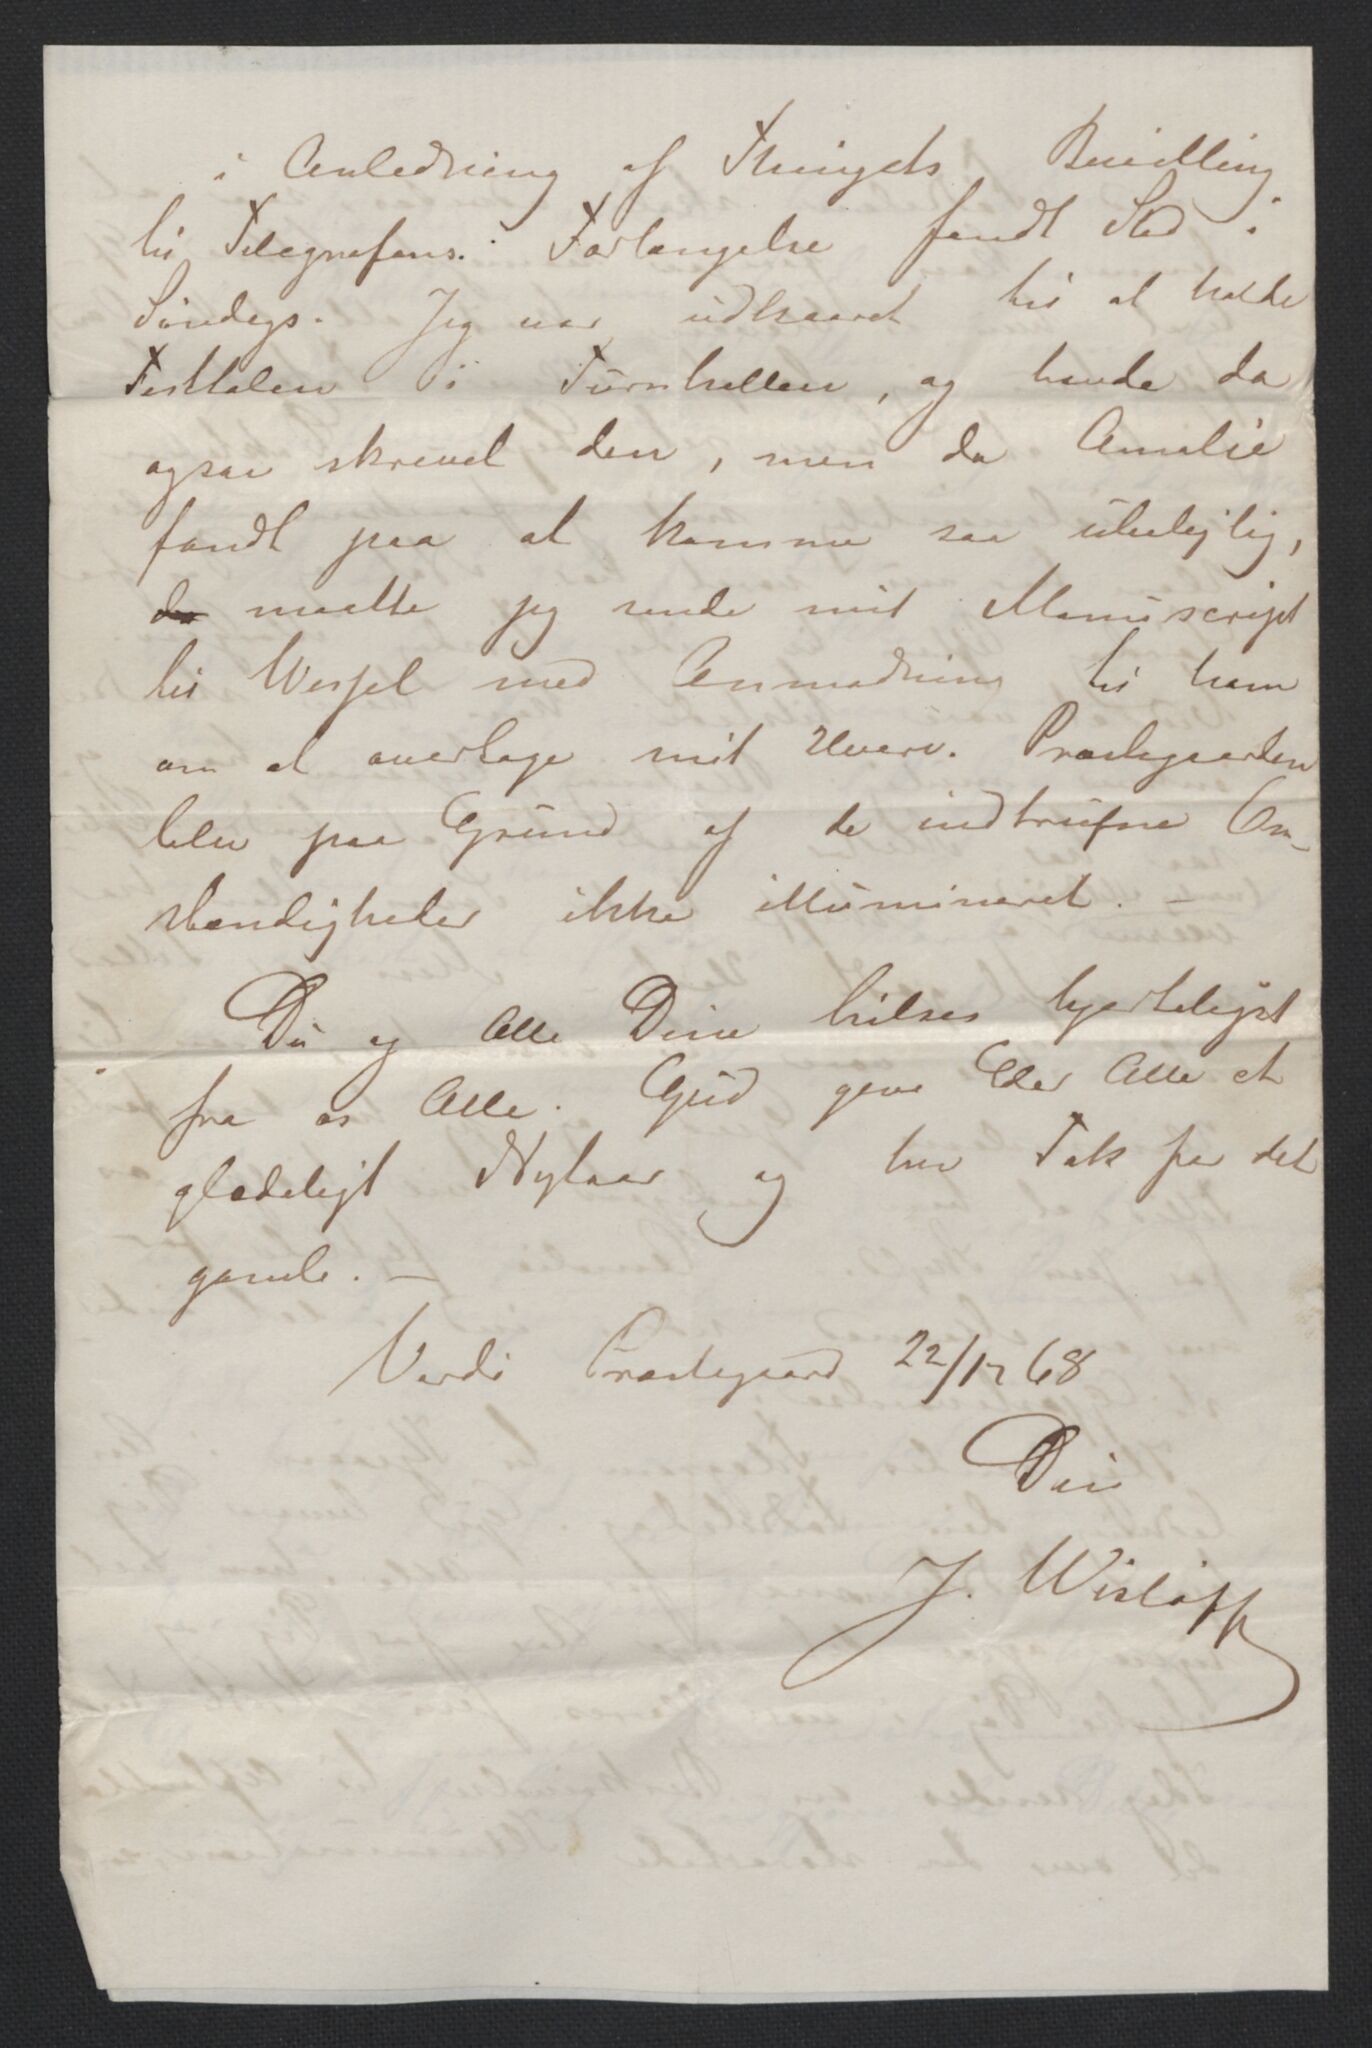 i Anledning af Thingets Bevilling
til Telegrafens Forlængelse fandt Sted i
Søndags. Jeg var udkaaret til at holde
Festtalen i Turnhallen, og havde da
ogsaa skrevet den, men da Amalie
fandt paa at komme saa ubelejlig,
da maatte jeg sende mit Manuscript
til Wessel med Anmodning til ham
om at overtage mit Hverv. Præstegaarden
blev paa Grund af de indtrufne Om-
stændigheder ikke illumineret. —
Du og Alle Dine hilses hjerteligst
fra os Alle. Gud give Eder Alle et
glædeligt Nytaar og hav Tak for det
gamle. —
Vardø Præstegaard 22/12 68
Din
J. Wisløff